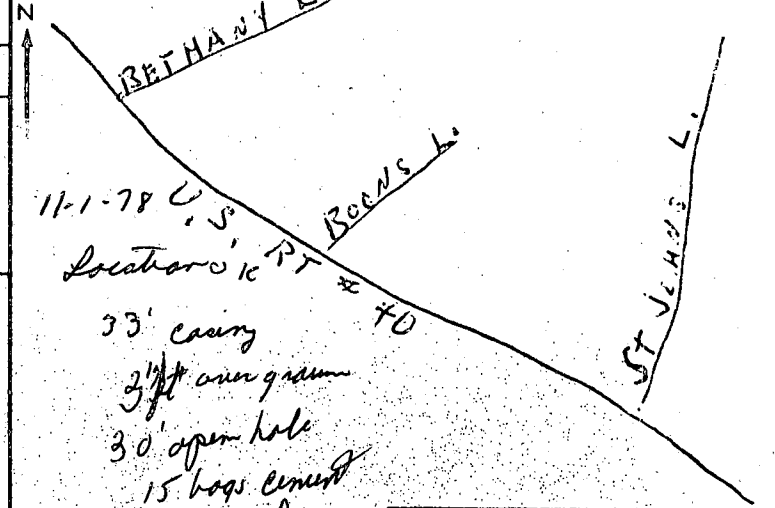 N
BETHANY L
BOONS L.
ST JOHNS L.
11-1-78
U.S. RT # 40
Location OK
33' casing
3' ft over ground
30' open hole
15 bags cement